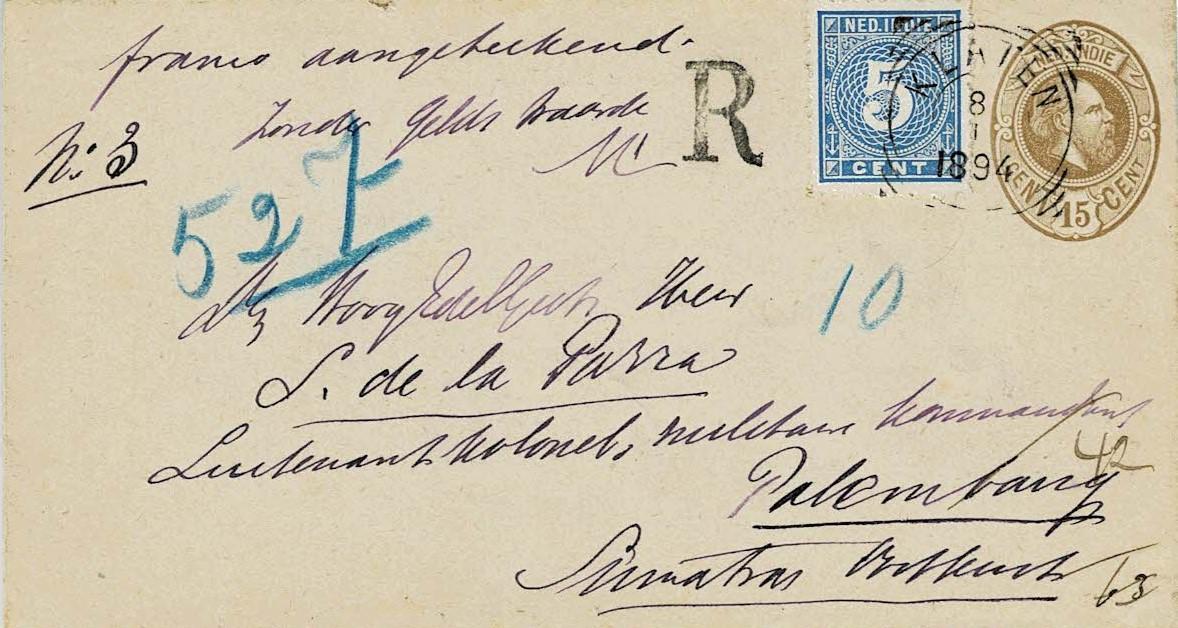 franco aangeteekend.
Zonder Gelds Waarde
No. 3
R
527
NED. INDIE
5
CENT
KLATEN
8
1
1894
NED. INDIE
15
CENT
10
Heer
S. de la Parra
Luitenant Kolonel, militair kommandant
Palembang
42
Sumatras
63